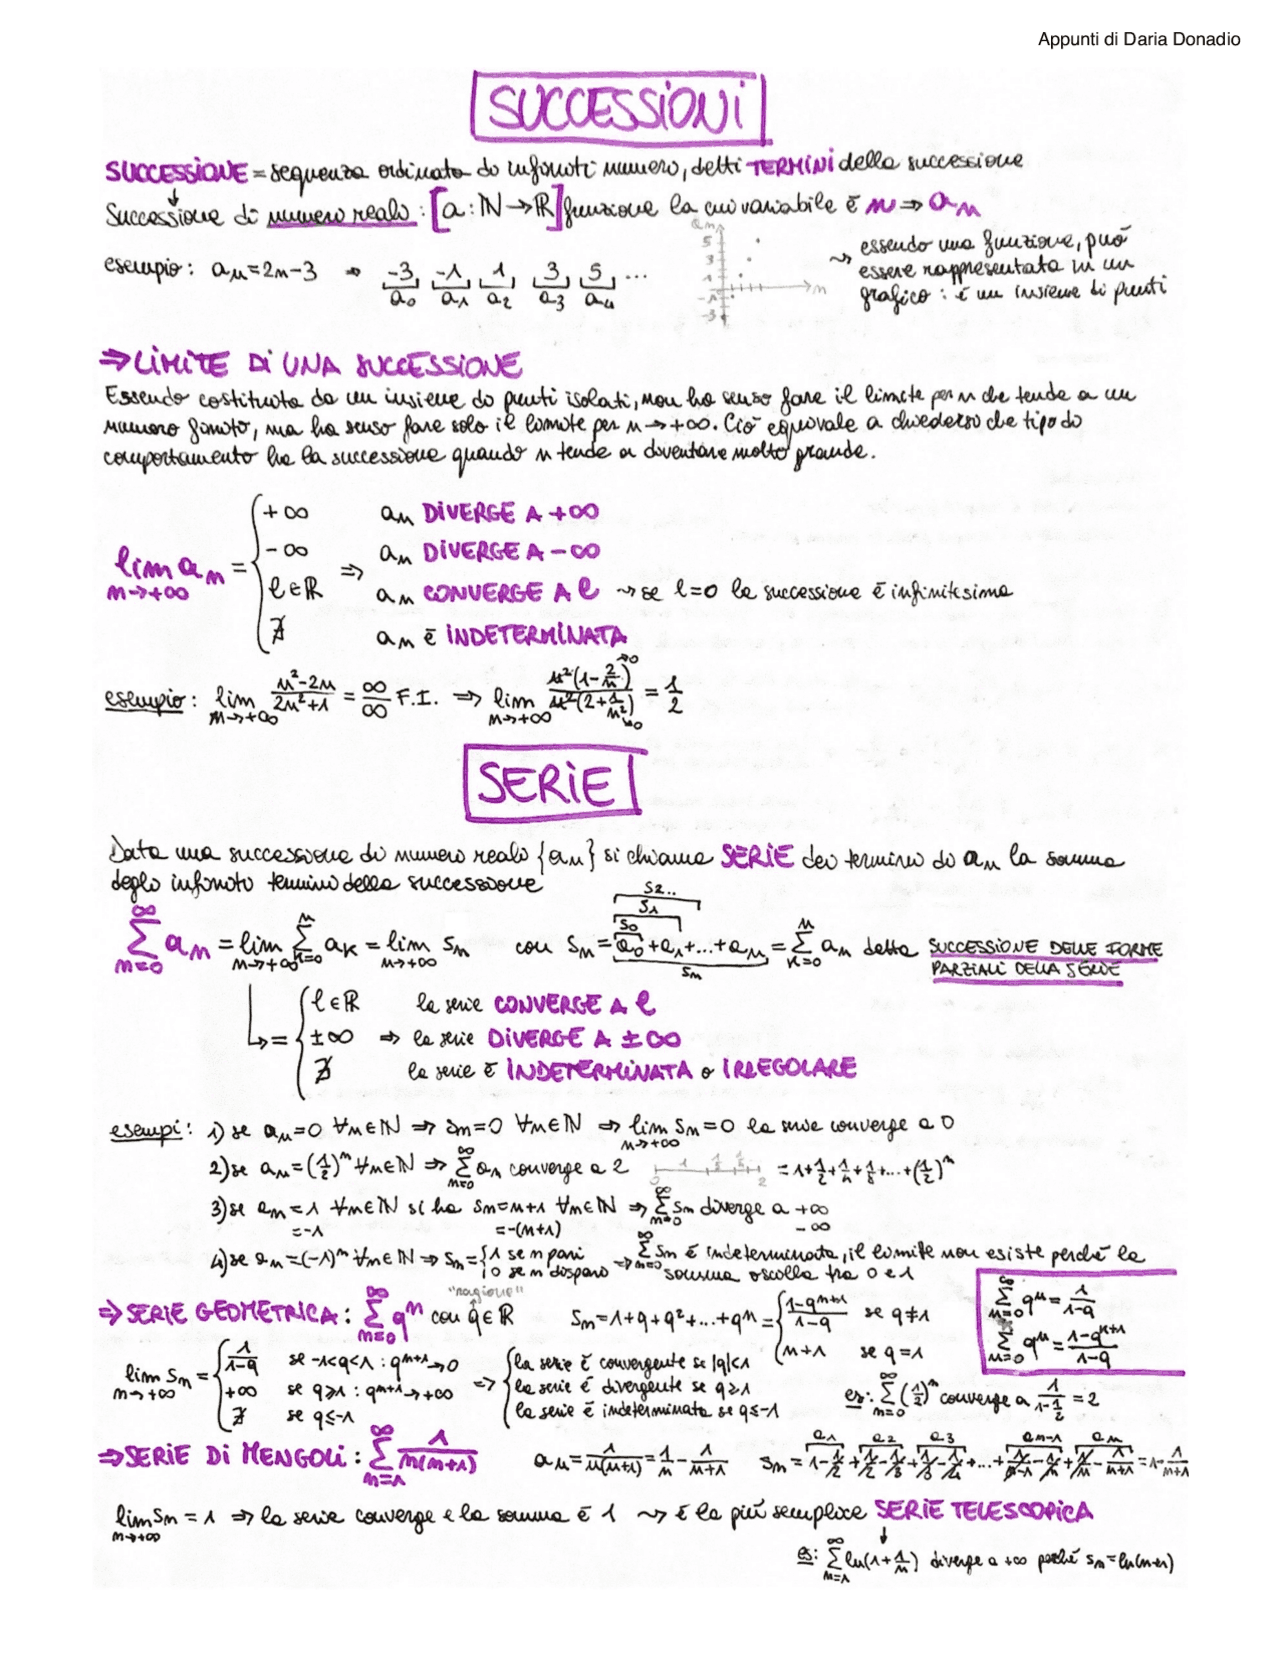 Appunti di Daria Donadio
SUCCESSIONI
SUCCESSIONE = sequenza ordinata di infiniti numeri, detti TERMINI della successione
Successione di numeri reali : [a : ℕ → ℝ] funzione la cui variabile è n ⇒ aₙ
esempio : aₙ = 2n-3 → -3, -1, 1, 3, 5, ...
a₀ a₁ a₂ a₃ a₄
aₙ 5 3 1 -1 -3 n
↝ essendo una funzione, può
essere rappresentata in un
grafico : è un insieme di punti
⇒ LIMITE DI UNA SUCCESSIONE
Essendo costituita da un insieme di punti isolati, non ha senso fare il limite per n che tende a un
numero finito, ma ha senso fare solo il limite per n → +∞. Ciò equivale a chiedersi che tipo di
comportamento ha la successione quando n tende a diventare molto grande.
lim aₙ = { +∞ ⇒ aₙ DIVERGE A +∞
n→+∞ -∞ aₙ DIVERGE A -∞
ℓ∈ℝ aₙ CONVERGE A ℓ ↝ se ℓ=0 la successione è infinitesima
∄ aₙ è INDETERMINATA
esempio : lim n→+∞ (n²-2n)/(2n²+1) = ∞/∞ F.I. ⇒ lim n→+∞ n²(1-2/n)→0 / n²(2+1/n²)→0 = 1/2
SERIE
Data una successione di numeri reali {aₙ} si chiama SERIE dei termini di aₙ la somma
degli infiniti termini della successione
S₂..
S₁
S₀
∑ₙ₌₀^∞ aₙ = lim n→+∞ ∑ₖ₌₀ⁿ aₖ = lim n→+∞ Sₙ con Sₙ = a₀+a₁+...+aₙ = ∑ₖ₌₀ⁿ aₙ detta SUCCESSIONE DELLE FORME
Sₙ PARZIALI DELLA SERIE
↳ = { ℓ∈ℝ la serie CONVERGE A ℓ
±∞ ⇒ la serie DIVERGE A ±∞
∄ la serie è INDETERMINATA o IRREGOLARE
esempi : 1) se aₙ=0 ∀n∈ℕ ⇒ Sₙ=0 ∀n∈ℕ ⇒ lim n→+∞ Sₙ=0 la serie converge a 0
2) se aₙ=(1/2)ⁿ ∀n∈ℕ ⇒ ∑ₙ₌₀^∞ aₙ converge a 2 0 1 1/2 1/4 2 = 1+1/2+1/4+1/8+...+(1/2)ⁿ
3) se aₙ=1 ∀n∈ℕ si ha Sₙ=n+1 ∀n∈ℕ ⇒ ∑ₙ₌₀^∞ Sₙ diverge a +∞
=-1 =-(n+1) -∞
4) se aₙ=(-1)ⁿ ∀n∈ℕ ⇒ Sₙ={1 se n pari 0 se n disparo ⇒ ∑ₙ₌₀^∞ Sₙ è indeterminata, il limite non esiste perché la
somma oscilla tra 0 e 1
"ragione"
⇒ SERIE GEOMETRICA : ∑ₙ₌₀^∞ qⁿ con q∈ℝ Sₙ = 1+q+q²+...+qⁿ = { (1-qⁿ⁺¹)/(1-q) se q≠1
n+1 se q=1
∑ₙ₌₀^∞ qⁿ = 1/(1-q)
∑ₙ₌₀ qⁿ = (1-qⁿ⁺¹)/(1-q)
lim n→+∞ Sₙ = { 1/(1-q) se -1<q<1 : qⁿ⁺¹→0 ⇒ { la serie è convergente se |q|<1
+∞ se q≥1 : qⁿ⁺¹→+∞ la serie è divergente se q≥1
∄ se q≤-1 la serie è indeterminata se q≤-1
es: ∑ₙ₌₀^∞ (1/2)ⁿ converge a 1/(1-1/2) = 2
⇒ SERIE DI MENGOLI : ∑ₙ₌₁^∞ 1/(n(n+1)) aₙ = 1/(n(n+1)) = 1/n - 1/(n+1) Sₙ = 1-1/2+1/2-1/3+1/3-1/4+...+1/(n-1)-1/n+1/n-1/(n+1) = 1-1/(n+1)
a₁ a₂ a₃ aₙ₋₁ aₙ
lim n→+∞ Sₙ = 1 ⇒ la serie converge e la somma è 1 ↝ è la più semplice SERIE TELESCOPICA
es: ∑ₙ₌₁^∞ ln(1+1/n) diverge a +∞ perché Sₙ = ln(n+1)